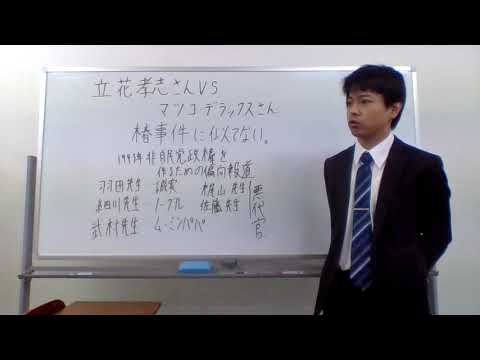 立花孝志さんVS
マツコ・デラックスさん
椿事件に似てない。
1993年非自民党政権を
作るための偏向報道
羽田先生 誠実 梶山先生 悪代官
細川先生 ノーブル 佐藤先生
武村先生 ムーミンパパ